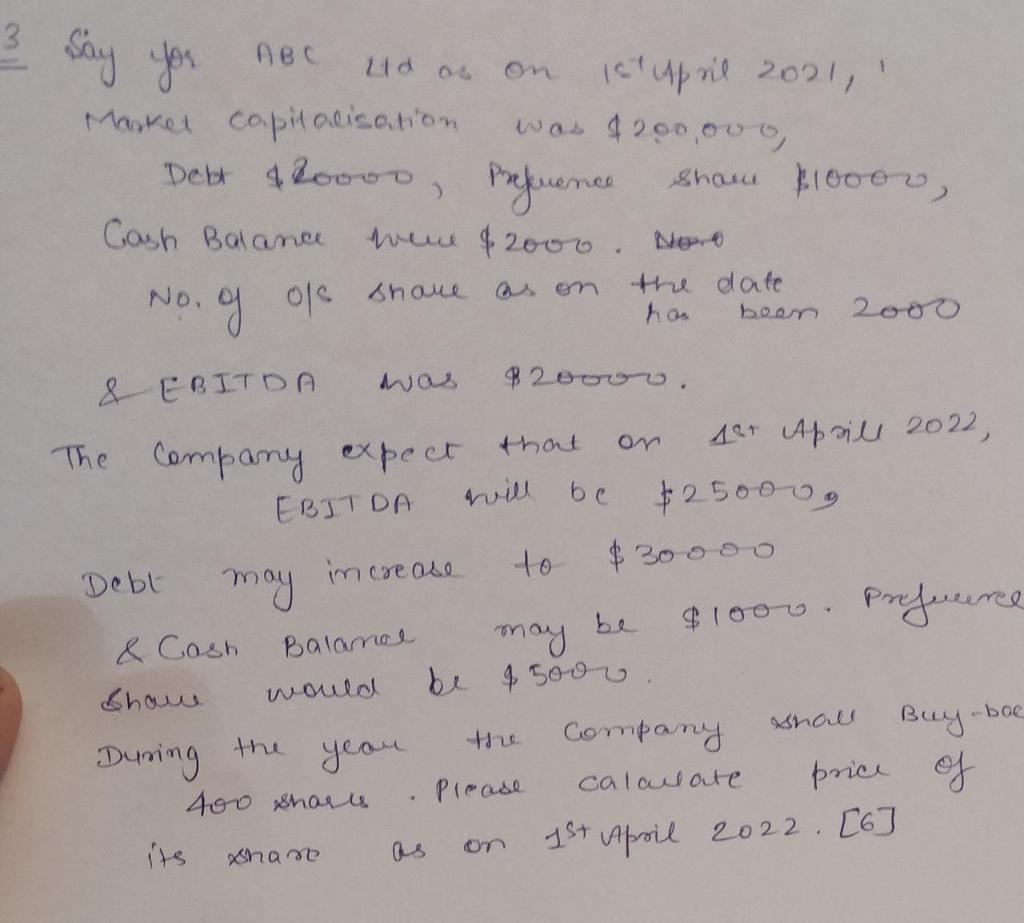 3 Say for ABC Ltd as on 1st April 2021,
Market Capitalisation was $200,000,
Debt $20000, Preference share $10000,
Cash Balance were $2000.
No. of o/s share as on the date
has been 2000
& EBITDA was $20000.
The Company expect that on 1st Aprill 2022,
EBITDA will be $25000,
Debt may increase to $30000
& Cash Balance may be $1000. Preference
share would be $5000.
During the year the Company shall Buy-bac
400 shares. Please calculate price of
its share as on 1st April 2022. [6]